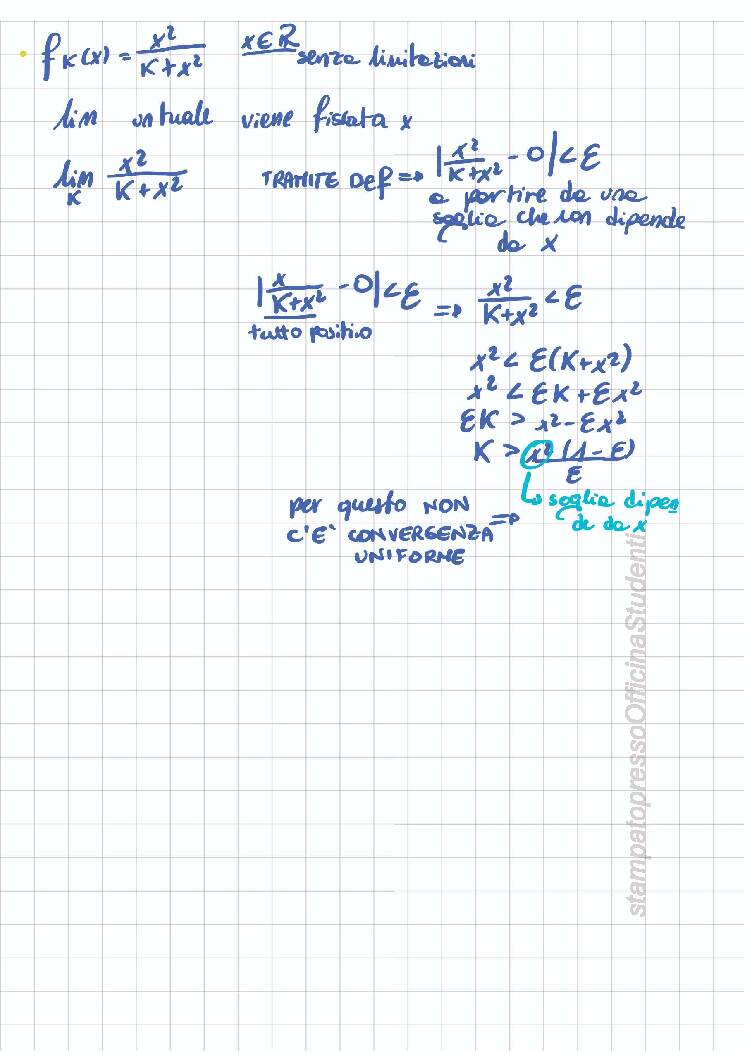 • f_K(x) = x²/(K+x²) x∈R senza limitazioni
lim untuale viene fissata x
lim_K x²/(K+x²) TRAMITE DEF => |x²/(K+x²) - 0| < ε
a partire da una
soglia che non dipende
da x
|x/(K+x²) - 0| < ε => x²/(K+x²) < ε
tutto positivo
x² < ε(K+x²)
x² < εK + εx²
εK > x² - εx²
K > x²(1-ε)/ε
↳ soglia dipen
de da x
per questo NON =>
C'E' CONVERGENZA
UNIFORME
stampatopressoOfficinaStudenti